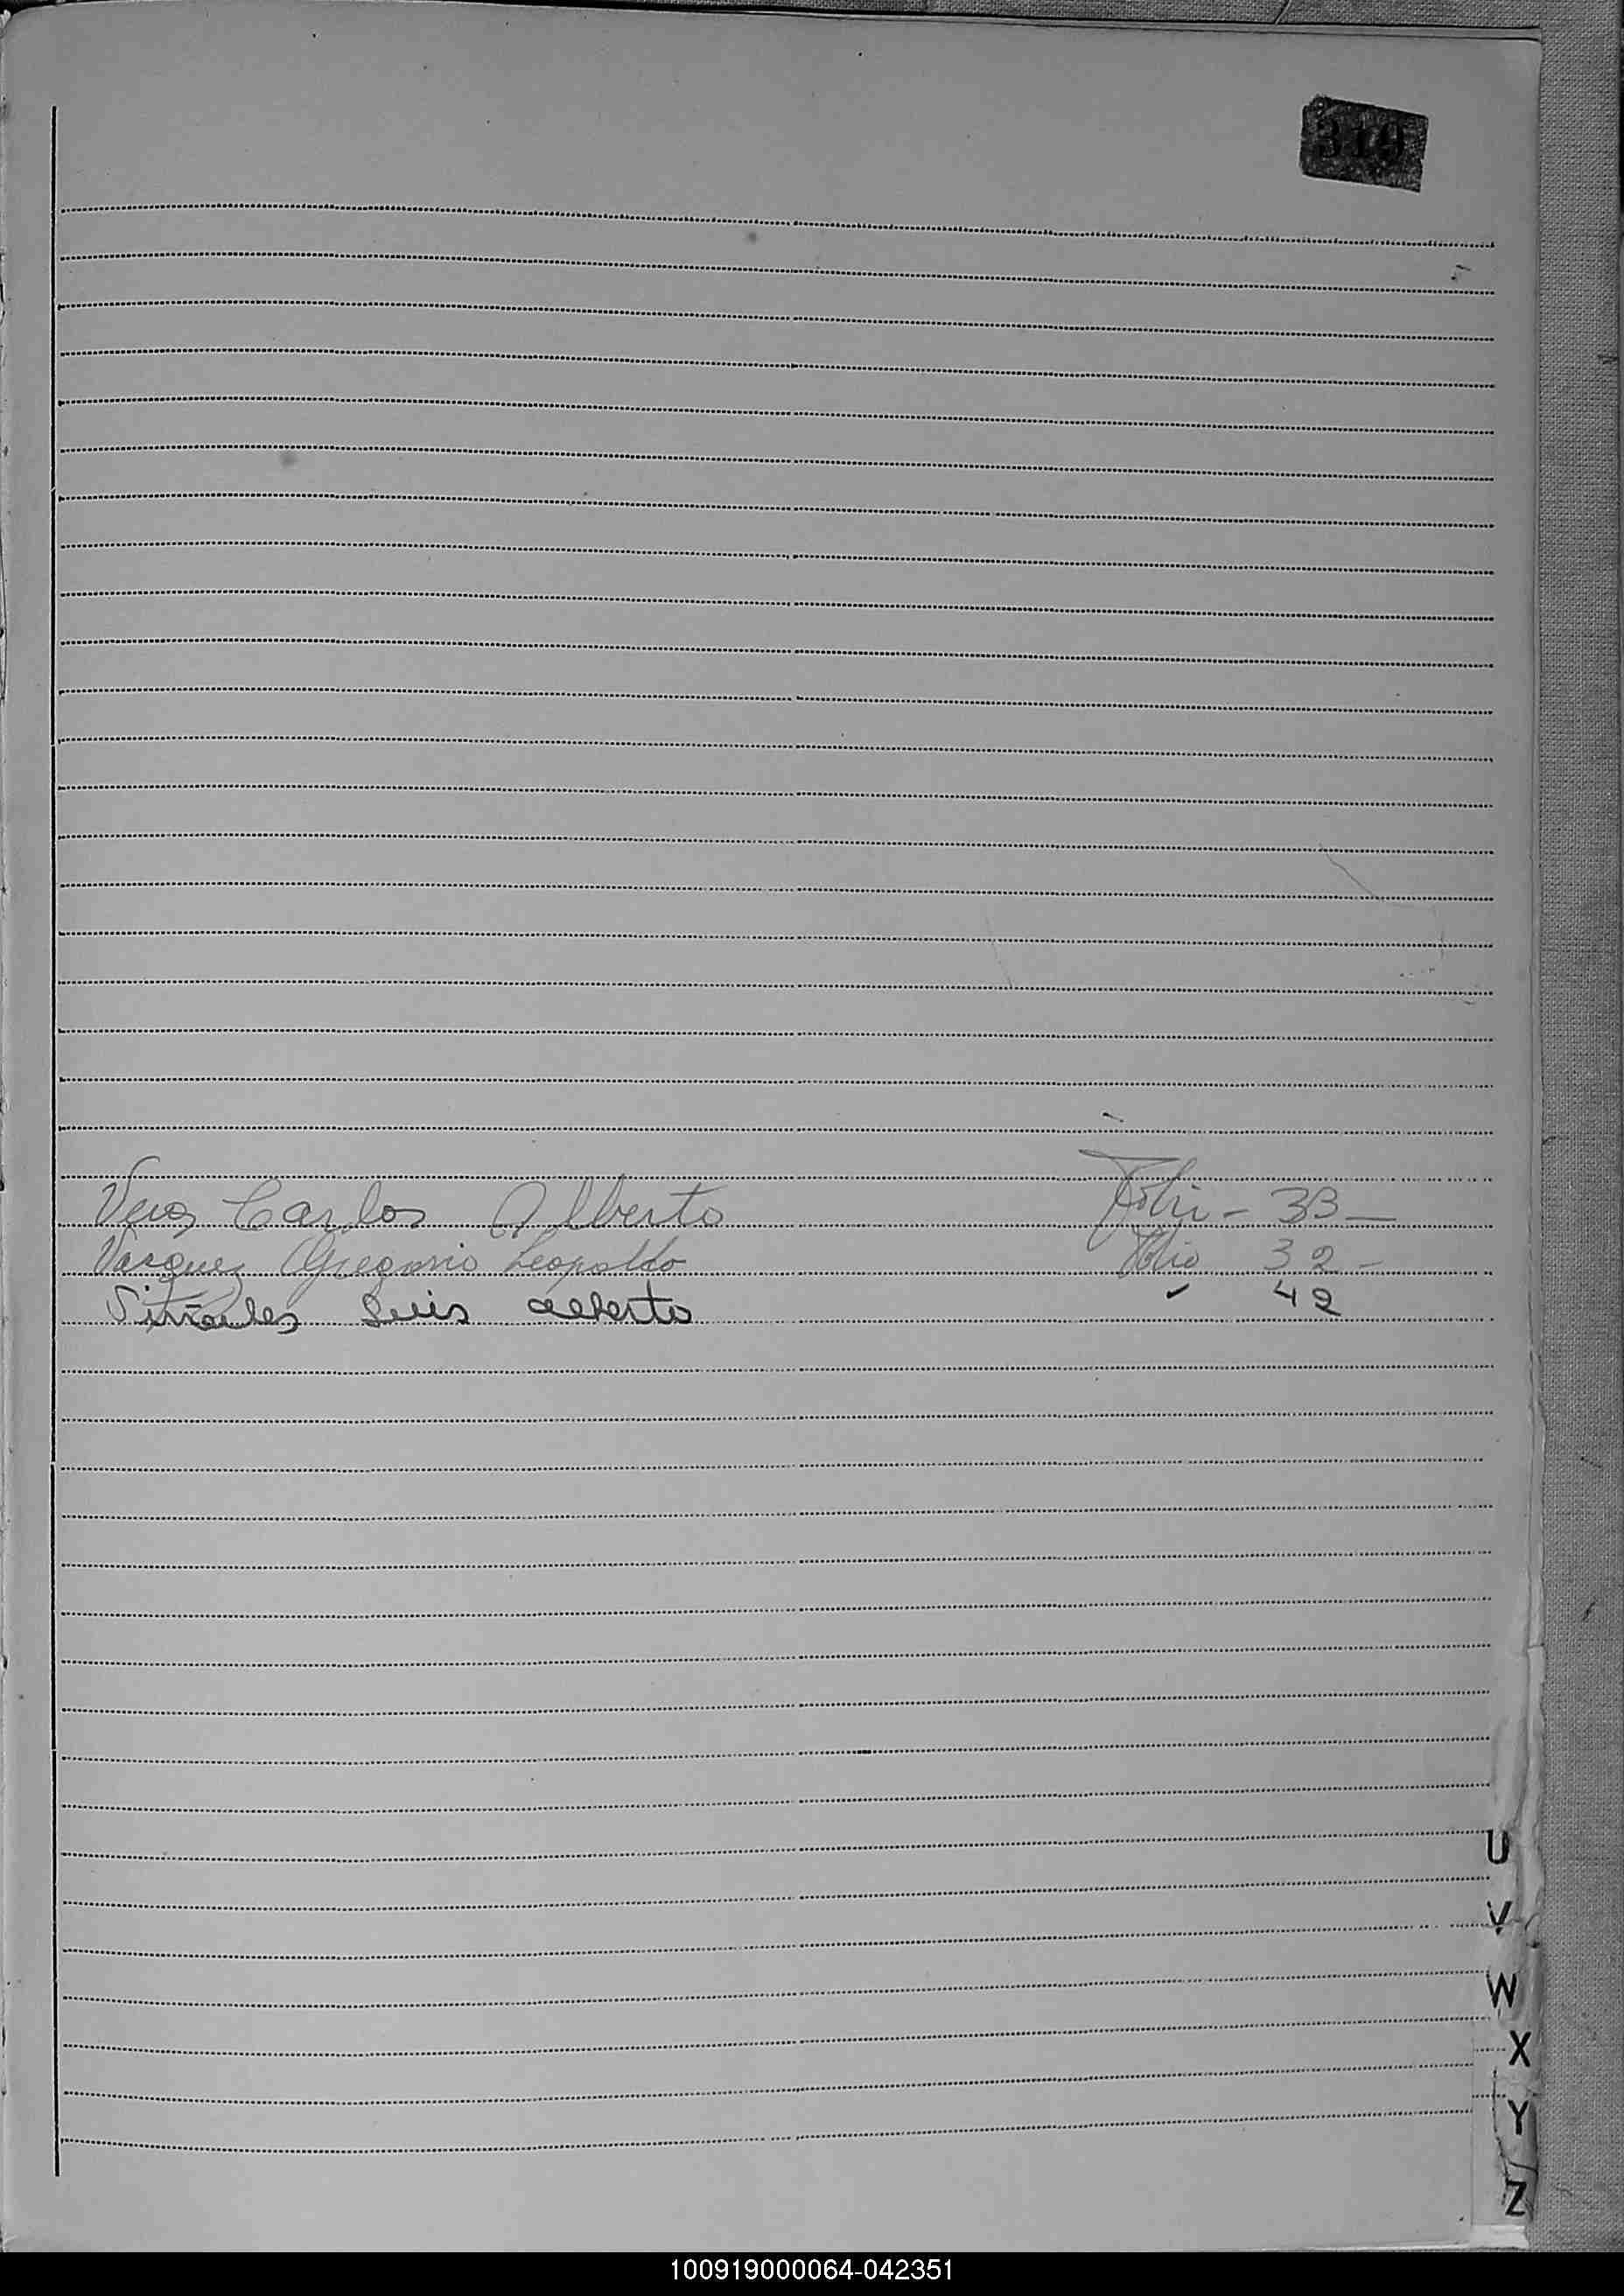 319
Vera Carlos Alberto Folio - 33 -
Vasquez Gregorio Leopoldo Folio 32 -
Luis Alberto 42
U
V
W
X
Y
Z
100919000064-042351